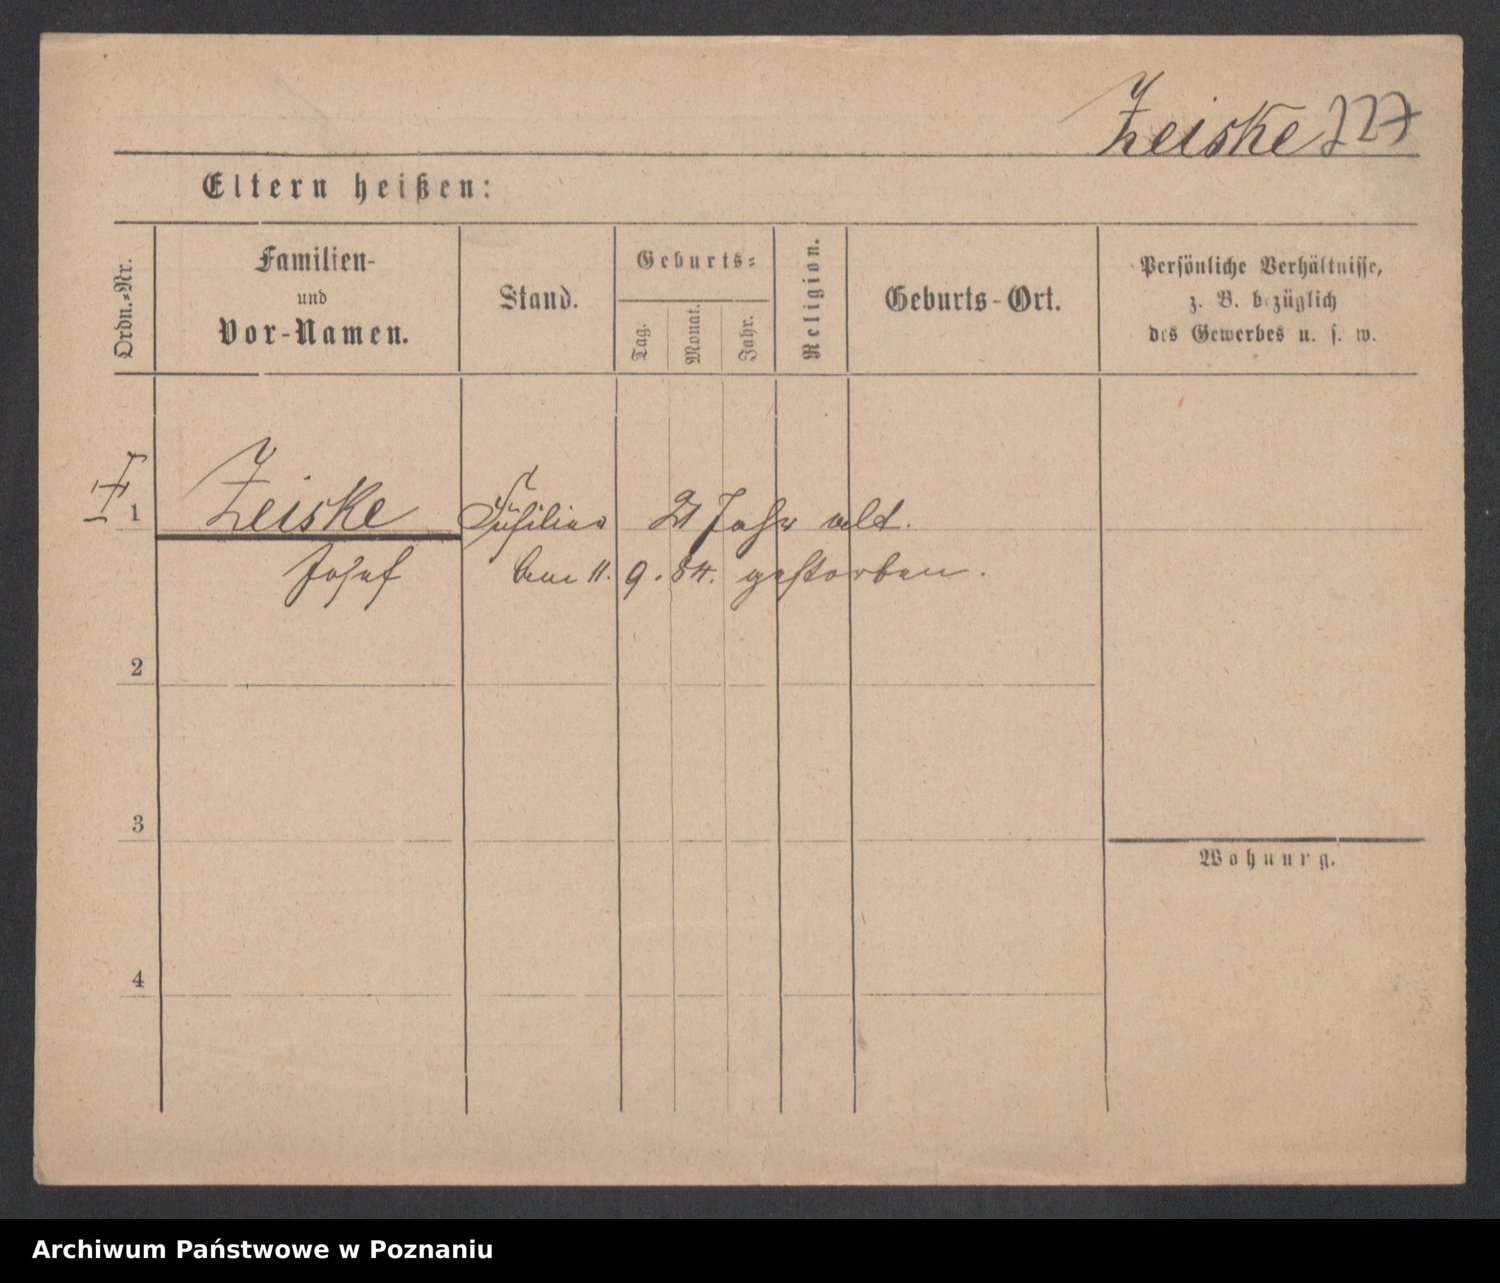 Zeiske 227
Eltern heißen:
Ordn.=Nr.
Familien-
und
Vor-Namen.
Stand.
Geburts=
Tag.
Monat.
Jahr.
Religion.
Geburts-Ort.
Persönliche Verhältnisse,
z. B. bezüglich
des Gewerbes u. s. w.
1 Zeiske Füsilier 21 Jahr alt.
Josef am 11. 9. 84. gestorben.
2
3
Wohnung.
4
Archiwum Państwowe w Poznaniu